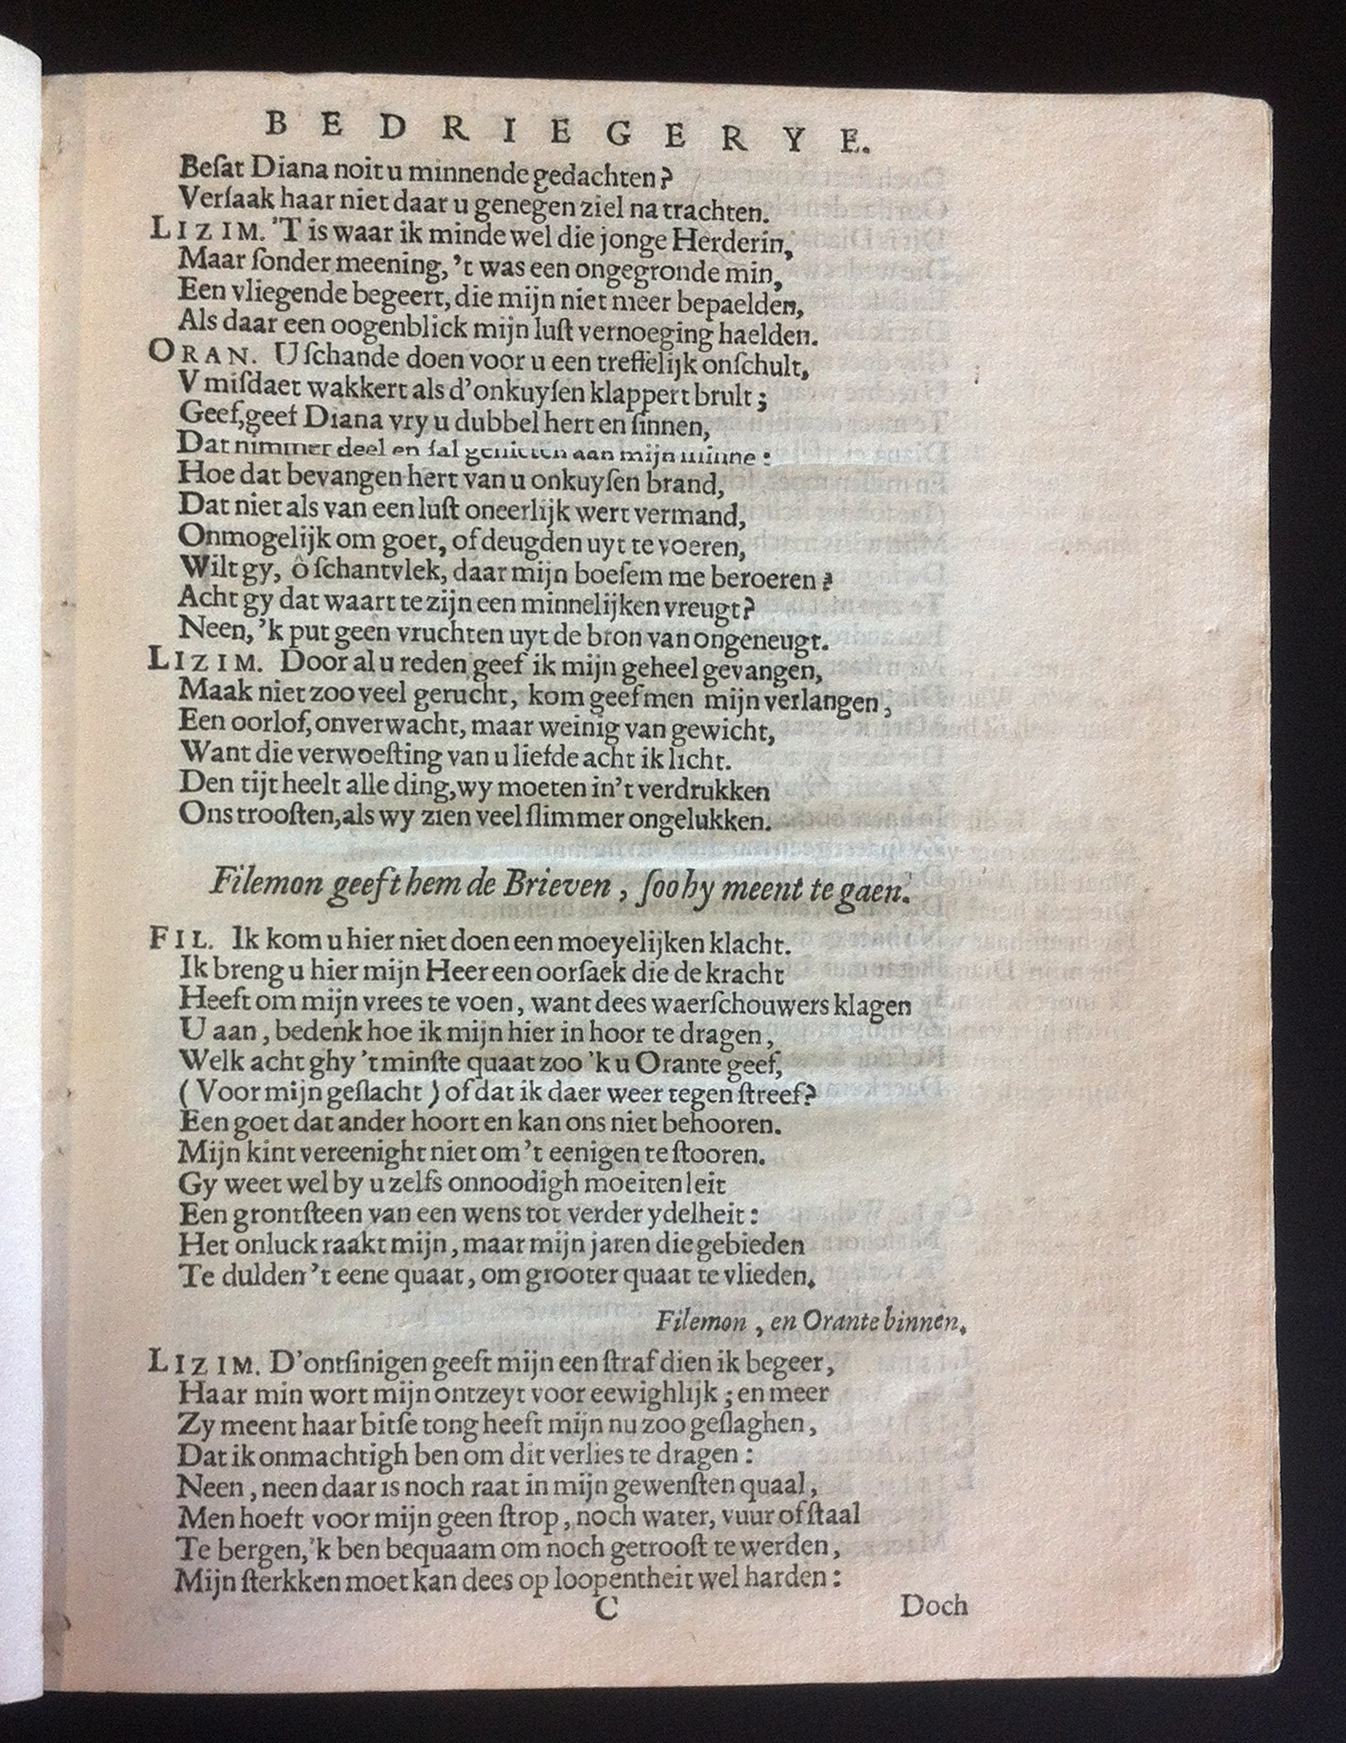 BEDRIEGERYE.
Beſat Diana noit u minnende gedachten?
Verſaak haar niet daar u genegen ziel na trachten.
LIZIM. 'T is waar ik minde wel die jonge Herderin,
Maar ſonder meening, 't was een ongegronde min,
Een vliegende begeert, die mijn niet meer bepaelden,
Als daar een oogenblick mijn luſt vernoeging haelden.
ORAN. U ſchande doen voor u een treffelijk onſchult,
V miſdaet wakkert als d'onkuyſen klappert brult;
Geef, geef Diana vry u dubbel hert en ſinnen,
Dat nimmer deel en ſal genieten aan mijn minne:
Hoe dat bevangen hert van u onkuyſen brand,
Dat niet als van een luſt oneerlijk wert vermand,
Onmogelijk om goet, of deugden uyt te voeren,
Wilt gy, ô ſchantvlek, daar mijn boeſem me beroeren?
Acht gy dat waart te zijn een minnelijken vreugt?
Neen, 'k put geen vruchten uyt de bron van ongeneugt.
LIZIM. Door al u reden geef ik mijn geheel gevangen,
Maak niet zoo veel gerucht, kom geefmen mijn verlangen,
Een oorlof, onverwacht, maar weinig van gewicht,
Want die verwoeſting van u liefde acht ik licht.
Den tijt heelt alle ding, wy moeten in't verdrukken
Ons trooſten, als wy zien veel ſlimmer ongelukken.
Filemon geeft hem de Brieven, ſoo hy meent te gaen.
FIL. Ik kom u hier niet doen een moeyelijken klacht.
Ik breng u hier mijn Heer een oorſaek die de kracht
Heeft om mijn vrees te voen, want dees waerſchouwers klagen
U aan, bedenk hoe ik mijn hier in hoor te dragen,
Welk acht ghy 't minſte quaat zoo 'k u Orante geef,
(Voor mijn geſlacht) of dat ik daer weer tegen ſtreef?
Een goet dat ander hoort en kan ons niet behooren.
Mijn kint vereenight niet om 't eenigen te ſtooren.
Gy weet wel by u zelfs onnoodigh moeiten leit
Een grontſteen van een wens tot verder ydelheit:
Het onluck raakt mijn, maar mijn jaren die gebieden
Te dulden 't eene quaat, om grooter quaat te vlieden.
Filemon, en Orante binnen.
LIZIM. D'ontſinigen geeft mijn een ſtraf dien ik begeer,
Haar min wort mijn ontzeyt voor eewighlijk; en meer
Zy meent haar bitſe tong heeft mijn nu zoo geſlaghen,
Dat ik onmachtigh ben om dit verlies te dragen:
Neen, neen daar is noch raat in mijn gewenſten quaal,
Men hoeft voor mijn geen ſtrop, noch water, vuur of ſtaal
Te bergen, 'k ben bequaam om noch getrooſt te werden,
Mijn ſterkken moet kan dees op loopentheit wel harden:
C Doch